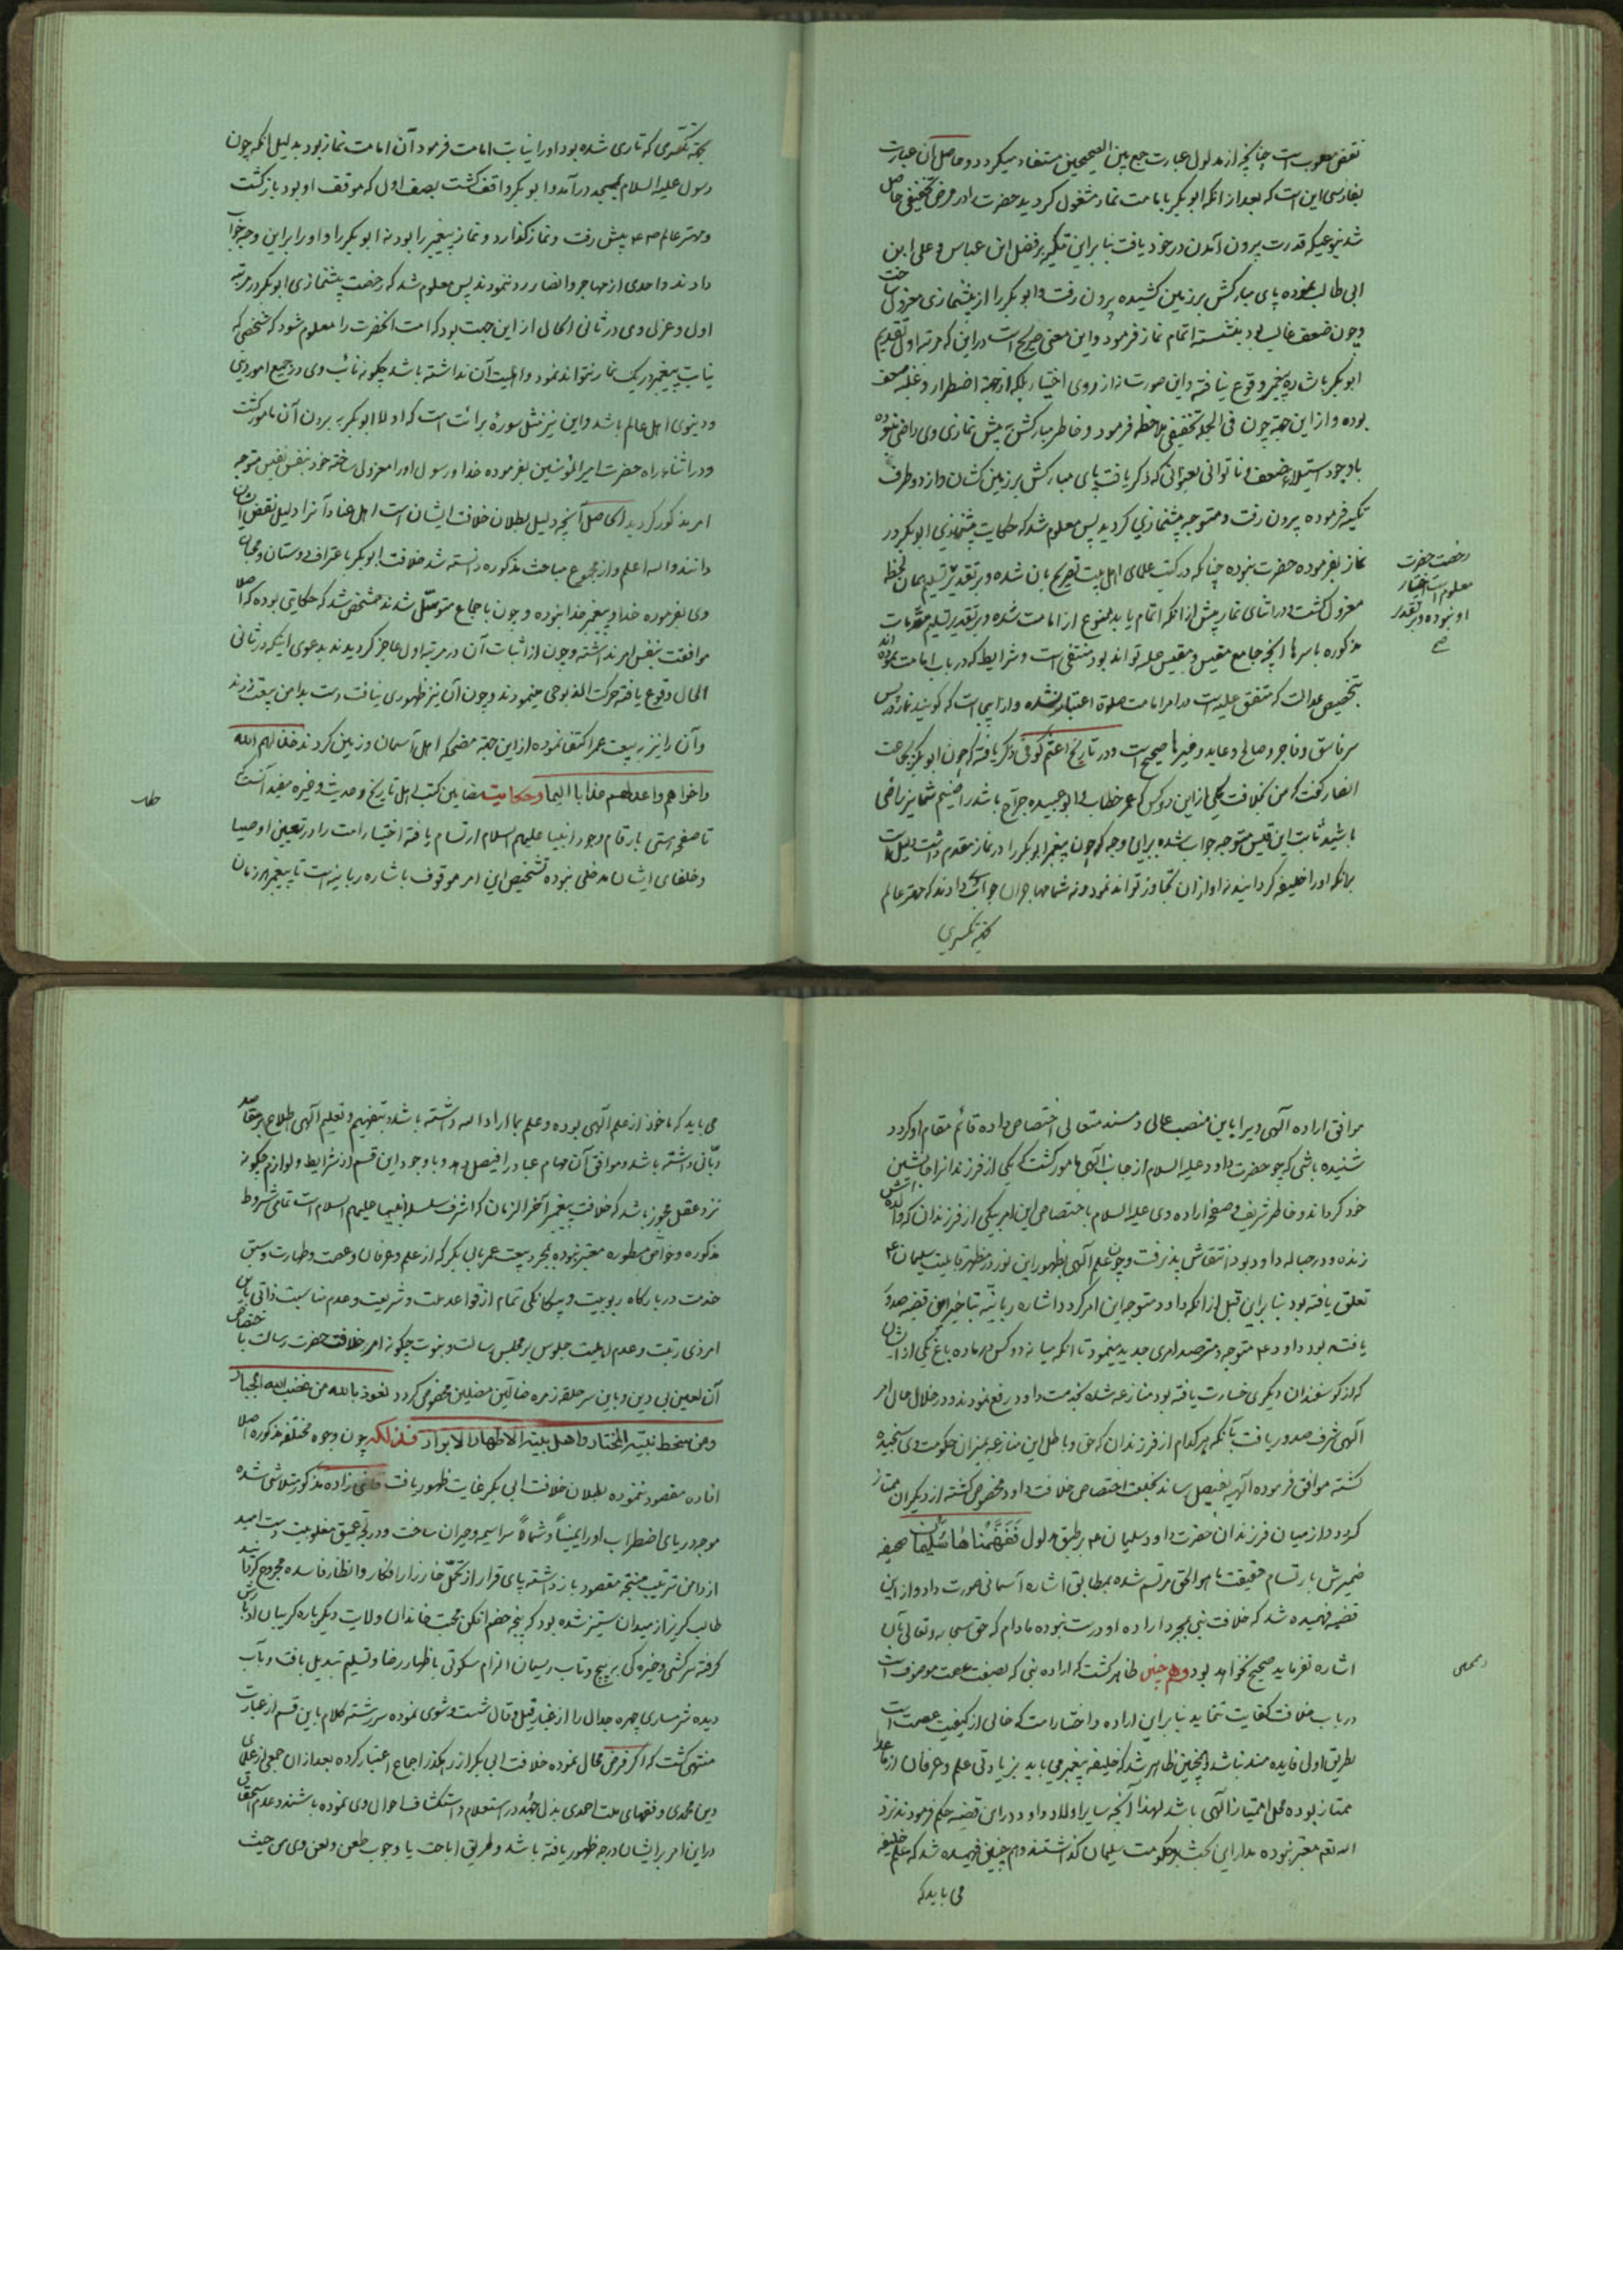 نقض مطلوبست چنانچه از مدلول عبارت جمع بین الصحیحین مستفاد میکردد و حاصل آن عبارت
بفارسی این است که بعد از انکه ابو بکر بامامت نماز مشغول کردید حضرت را در مرض تخفیفی حاصل
شد بنوعیکه قدرت بیرون آمدن در خود یافت بنا براین تکیه بر فضل ابن عباس و علی ابن
ابی طالب نموده پای مبارکش بر زمین کشیده بیرون رفت و ابو بکر را از پیشنمازی معزول ساخت
و چون ضعف غالب بود بنشسته اتمام نماز فرمود و این معنی صریح است در این که مرتبه اول تقدیم
ابو بکر باشاره پیغمبر وقوع نیافته و این صورت نه از روی اختیار بلکه از جهة اضطرار و غلبه ضعف
بوده و از این جهة چون فی الجمله تخفیفی ملاحظه فرمود و خاطر مبارکش به پیش نمازی وی راضی نبوده
باوجود استیلاء ضعف و ناتوانی بعنوانی که ذکر یافت پای مبارکش بر زمین کشان و از دو طرف
تکیه فرموده بیرون رفت و متوجه پیشنمازی کردید پس معلوم شد که حکایت پیشنمازی ابو بکر در
نماز بفرموده حضرت نبوده چنانکه در کتب علمای اهل بیت تصریح بان شده و بر تقدیر تسلیم همان لحظه
معزول کشت و در اثنای نماز پیش از انکه اتمام یابد ممنوع از امامت شده و بر تقدیر تسلیم مقدمات
مذکوره باسرها آنچه جامع مقیس و مقیس علیه تواند بود منتفی است و شرایط که در باب امامت نموده اند
بتخصیص عدالت که متفق علیه است در امر امامت صلوة اعتبار نشده و از اینجاست که کویند نماز در پس
سر فاسق و فاجر و صالح و عابد و غیرها صحیح است و در تاریخ اعثم کوفی ذکر یافته که چون ابو بکر بجماعت
انصار کفت که من بخلافت یکی از این دو کس که عمر خطاب و ابو عبیده جراح باشد راضیم شما نیز راضی
باشید ثابت ابن قیس متوجه جواب شده برین وجه که چون پیغمبر ابو بکر را در نماز مقدم داشت دلیل است
بر انکه او را خلیفه کردانیده نه او از ان تجاوز تواند نمود و نه شما مهاجران جواب دادند که مهتر عالم
رخصت حضرت
معلوم است اختیار
او نبوده و بر تقدیر
صح
بجهة تکسری که تاری شده بود او را نیابت امامت فرمود آن امامت نماز بود بدلیل انکه چون
رسول علیه السلام بمسجد درآمد و ابو بکر واقف کشت بصف اول که موقف او بود بازکشت
و مهتر عالم پیش رفت و نماز کذارد و نماز پیغمبر را بود نه ابو بکر را و او را بر این وجه جواب
دادند و احدی از مهاجر و انصار رد ننمودند پس معلوم شد که رخصت پیشنمازی ابو بکر در مرتبه
اول و عزل وی در ثانی الحال از این جهت بود که امت آنحضرت را معلوم شود که شخصی که
نیابت پیغمبر در یک نماز نتواند نمود و اهلیت آن نداشته باشد چکونه نائب وی در جمیع امور دینی
و دنیوی اهل عالم باشد و این نیز مثل سورهٔ برائت است که اولا ابو بکر به بردن آن مامور کشت
و در اثناء راه حضرت امیر المؤمنین بفرموده خدا و رسول او را معزول ساخته خود بنفس نفیس متوجه
امر مذکور کردید الحاصل آنچه دلیل بطلان خلافت ایشان است اهل عناد آنرا دلیل نقض ایشان
دانند والله اعلم و از مجموع مباحث مذکوره دانسته شد خلافت ابو بکر باعتراف دوستان و محبان
وی بفرموده خدا و پیغمبر خدا نبوده و چون باجماع متوسل شدند مشخص شد که حکایتی بوده که اصلا
موافقت بنفس امر نداشته و چون از اثبات آن در مرتبه اول عاجز کردیدند بدعوی اینکه در ثانی
الحال وقوع یافته حرکت المذبوحی مینمودند و چون آن نیز ظهوری نیافت دست بدامن بیعت زدند
و آن را نیز به بیعت عمر اکتفا نموده از این جهة مضحکه اهل آسمان و زمین کردند خذلهم الله
و اخزاهم و اعد لهم عذابا الیما وحکایت مضامین کتب اهل تاریخ و حدیث و غیره مفید آنست که
تا صفحه هستی بارقام وجود انبیا علیهم السلام ارتسام یافته اختیار امت را در تعیین اوصیا
و خلفای ایشان مدخلی نبوده تشخیص این امر موقوف باشاره ربانیه است تا پیغمبر هر زمان
موافق اراده الهی ویرا باین منصب عالی و مسند متعالی اختصاص داده قائم مقام او کردد
شنیده باشی که چو حضرت داود علیه السلام از جانب الهی مامور کشت که یکی از فرزندانرا جانشین
خود کرداند و خاطر شریف و صفحه اراده وی علیه السلام باختصاص این امر بیکی از فرزندان که والده اش
زنده و در حباله داود بود انتقاش پذیرفت و چون علم الهی بظهور این نور در مظهر قابلیت سلیمان
تعلق یافته بود بنا براین قبل از انکه داود متوجه این امر کردد اشاره ربانیه بتاخیر این قضیه صدور
یافته بود داود متوجه و مترصد امری جدید مینمود تا انکه میانه دو کس در ماده باغ یکی از ایشان
که از کوسفندان دیکری خسارت یافته بود منازعه شده بخدمت داود رفع نمودند و در خلال حال امر
الهی شرف صدور یافت بآنکه هر کدام از فرزندان که حق و باطل این منازعه بمیزان حکومت وی سنجیده
کشته موافق فرموده الهیه بفیصل رساند بخلعت اختصاص خلافت داود مخصوص کشته از دیکران ممتاز
کردد و از میان فرزندان حضرت داود سلیمان بر طبق مدلول فَفَهَّمْنَاهَا سُلَیْمَانَ صحیفه
ضمیرش بارتسام حقیقت ما هو الحق مرتسم شده بمطابق اشاره آسمانی صورت داد و از این
قضیه فهمیده شد که خلافت نبی بمجرد اراده او درست نبوده مادام که حق سبحانه و تعالی بآن
اشاره نفرماید صحیح نخواهد بود وهم چنین ظاهر کشت که اراده نبی که بصفت عصمت موصوف است
در باب خلافت کفایت ننماید بنا براین اراده و اختیار امت که خالی از کیفیت عصمت است
بطریق اولی فایده مند نباشد و همچنین ظاهر شد که خلیفه پیغمبر می باید بزیادتی علم و عرفان از ما عدا
ممتاز بوده محل امتیاز الهی باشد لهذا آنچه سایر اولاد داود در این قضیه حکم فرمودند نزد
الله تعم معتبر نبوده مدار این بحث بر حکومت سلیمان کذاشتند و هم چنین فهمیده شد که علم خلیفه
می باید که
می باید که ماخوذ از علم الهی بوده و علم بما اراد الله داشته باشد و بتفهیم و تعلیم الهی اطلاع بر مقاصد
ربانی داشته باشد و موافق آن مهام عباد را فیصل دهد و با وجود این قسم از شرایط و لوازم چکونه
نزد عقل مجوز باشد که خلافت پیغمبر آخر الزمان که اشرف سلسله انبیا علیهم السلام است تمامی شروط
مذکوره و خواص مسطوره معتبر نبوده بمجرد بیعت عمر بابی بکر که از علم و عرفان و عصمت و طهارت و سبق
خدمت دربارکاه ربوبیت و بیکانکی تمام از قواعد ملت و شریعت و عدم مناسبت ذاتی باین
امر ذی رتبت و عدم اهلیت جلوس بر مجلس رسالت و نبوت چکونه امر خلافت حضرت رسالت با اختصاص
آن لعین بی دین و باین سر حلقه زمره ضالین مضلین مخصوص کردد نعوذ بالله من غضب الله الجبار
ومن سخط نبیه المختار واهل بیته الاطهار الابرار فذلکه چون وجوه مختلفه مذکوره اصلا
افاده مقصود ننموده بطلان خلافت ابی بکر غایت ظهور یافت قاضی زاده مذکور متلاشی شده
موج دریای اضطراب او را یمیناً و شمالاً سراسیمه و حیران ساخت و در لجه عمیق مغلوبیت دست امید
از دامن ترتیب منتج مقصود باز داشته پای قرار از تحمل خارزار افکار و انظار فاسده مجروح کردانید
طالب کریز از میدان ستیز شده بود که پنجه خصم افکن محبت خاندان ولایت دیکرباره کریبان ادبارش
کرفته سرکشی و خیره کی بر پیچ و تاب ریسمان الزام سکوتی باظهار رضا و تسلیم تبدیل یافت و بآب
دیده شرمساری چهره جدال را از غبار قیل و قال شست و شوی نموده سررشته کلام باین قسم از عبارت
منتهی کشت که اکر فرض محال نموده خلافت ابی بکر از رهکذر اجماع اعتبار کرده بعد از ان جمعی از علمای
دین محمدی و فقهای ملت احمدی بذل جهد در استعلام و استکشاف احوال وی نموده باشند و عدم استحقاق
در این امر بر ایشان درجه ظهور یافته باشد و طریق اباحت یا وجوب طعن و لعن وی من حیث